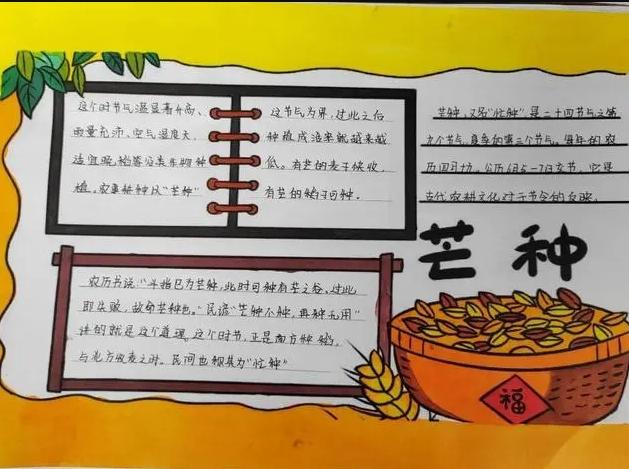 这个时节气温显著升高、
雨量充沛、空气湿度大,
适宜晚稻等谷类作物种
植。农事耕种以"芒种"
这节气为界,过此之后
种植成活率就越来越
低。有芒的麦子快收,
有芒的稻子可种。
芒种,又名"忙种",是二十四节气之第
九个节气,夏季的第三个节气。每年的农
历四月。公历6月5-7日交节,它是
古代农耕文化对于节令的反映。
芒种
农历书说:"斗指巳为芒种,此时可种有芒之谷,过此
即失败,故命芒种也。"民谚"芒种不种,再种无用"
讲的就是这个道理。这个时节,正是南方种稻,
与北方收麦之时。民间也称其为"忙种"
福